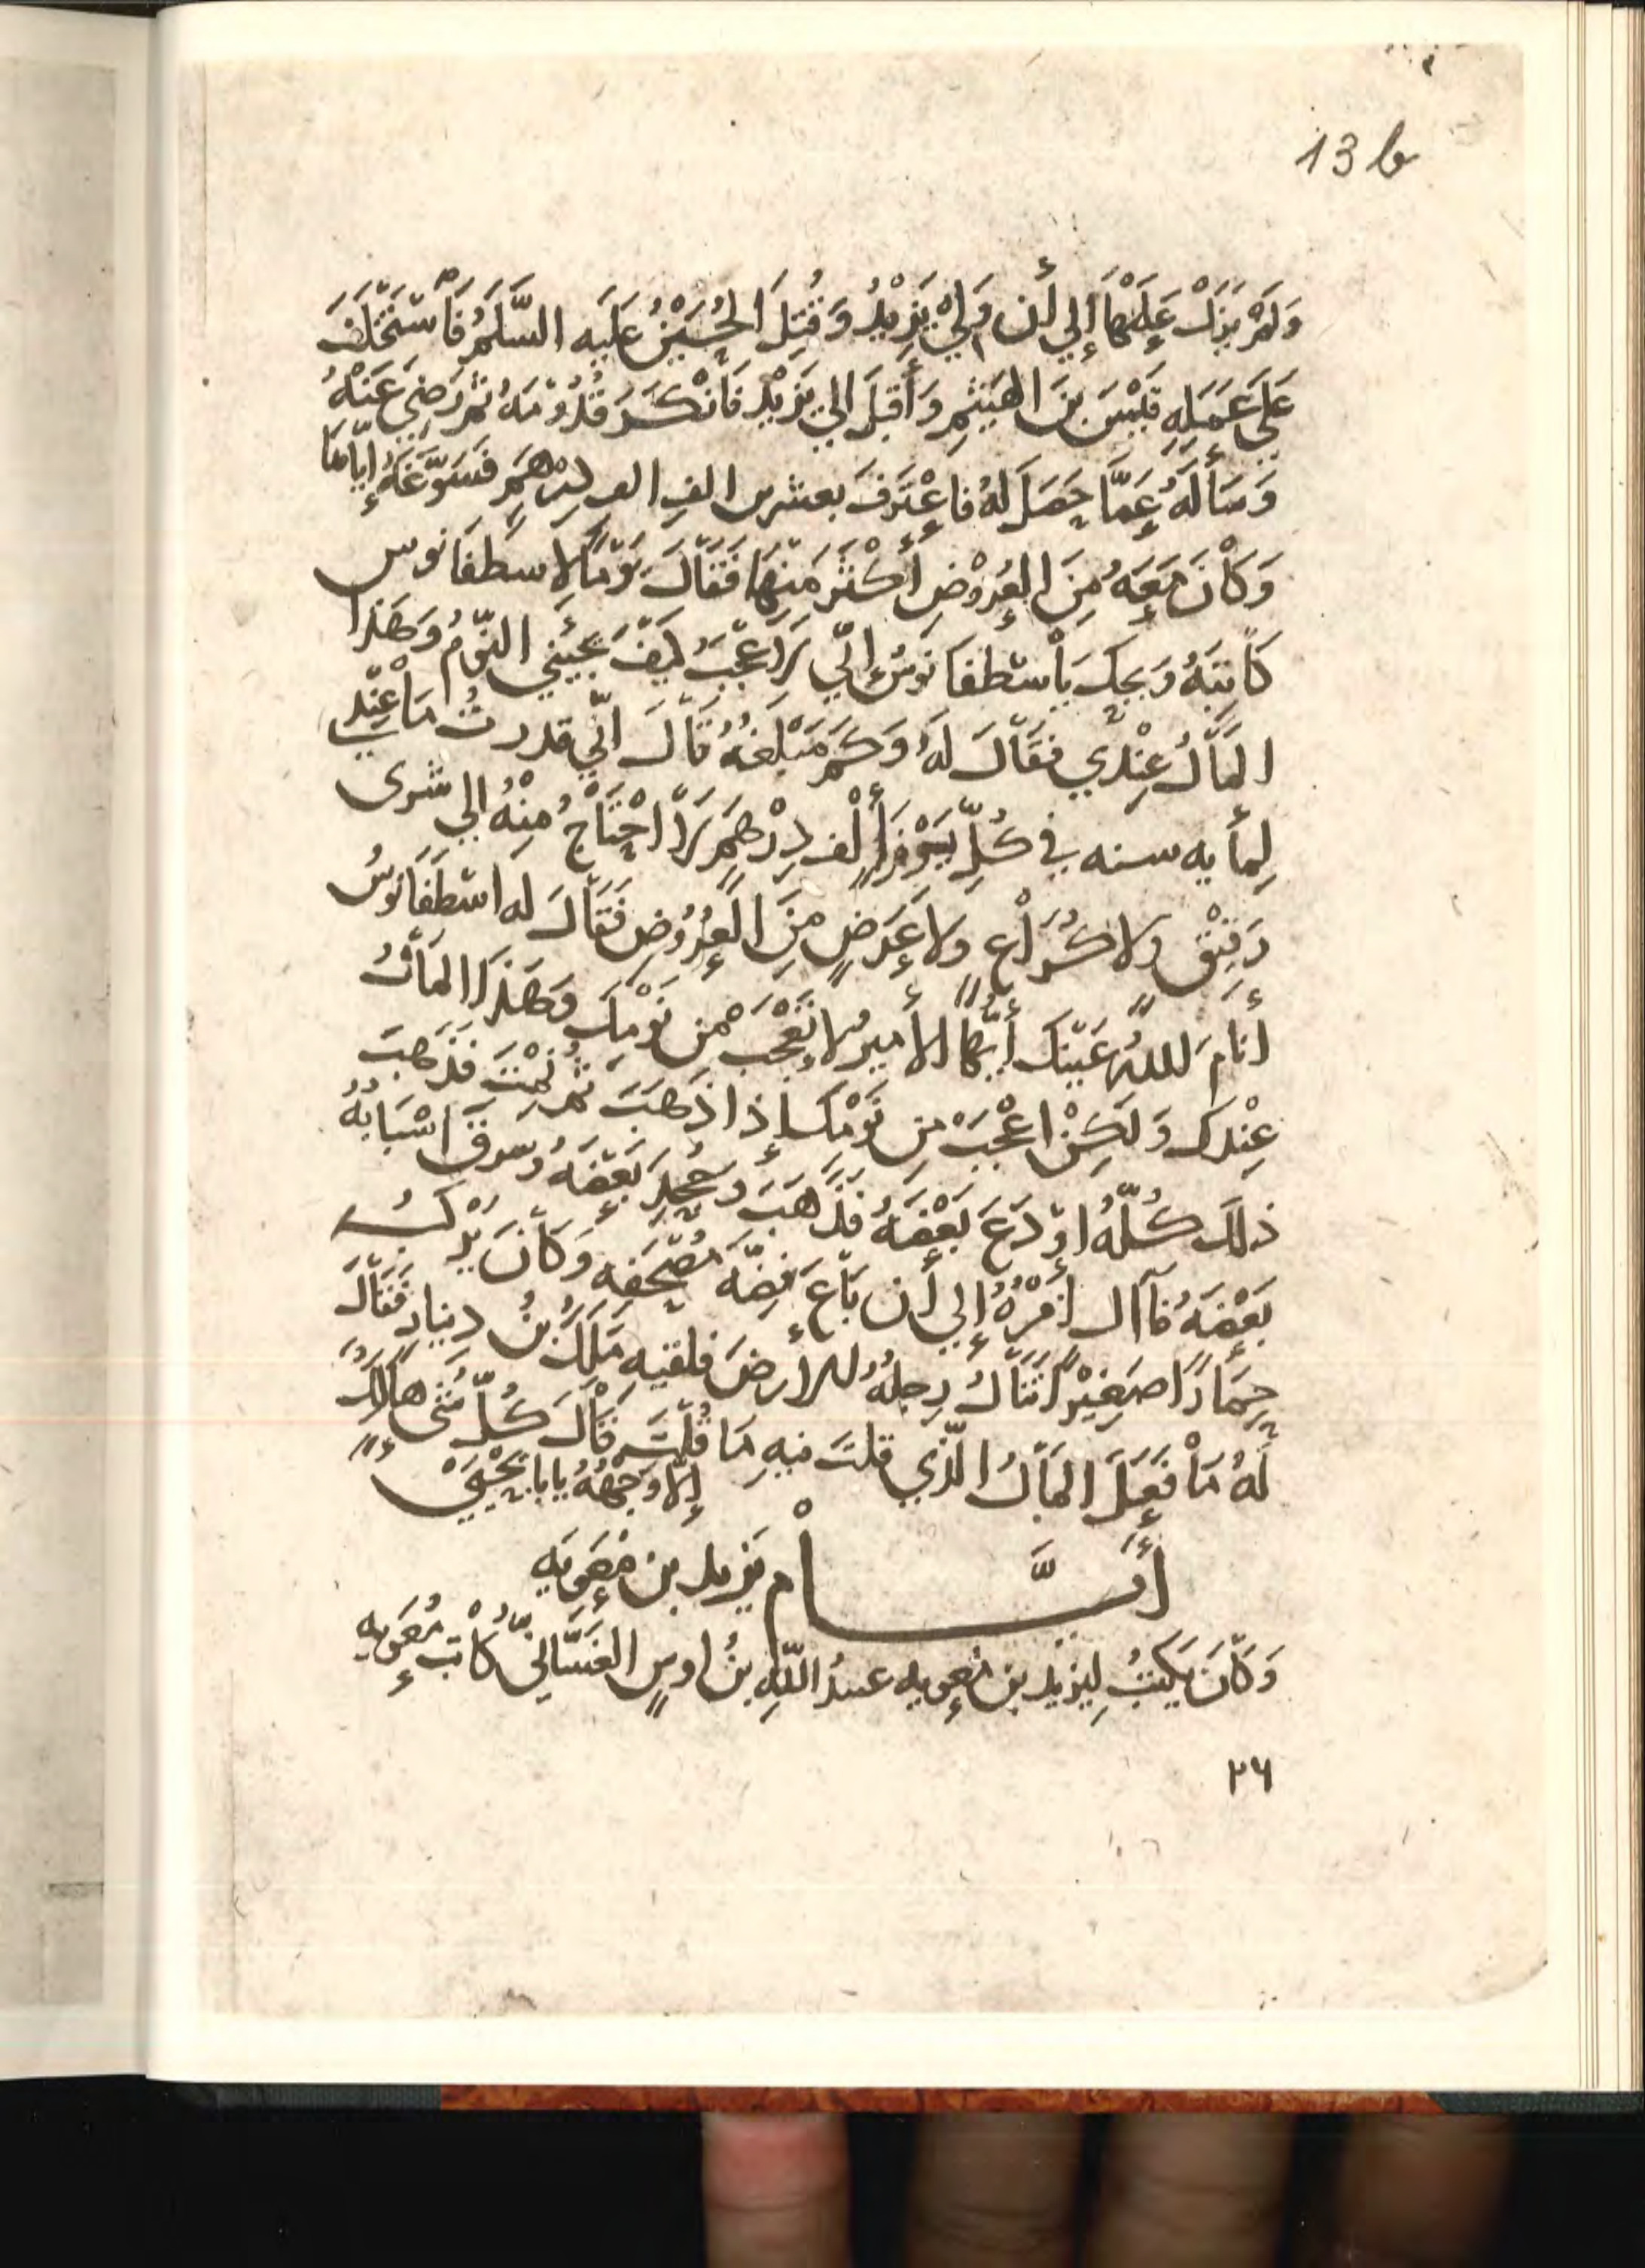 13 b
وَلَمْ يَزَلْ عَلَيْهَا إِلي أَن وَلِيَ يَزِيْدُ وَقُتِلَ الْحُسَيْنُ عَلَيهِ السَّلَمُ فَاسْتَخْلَفَ
عَلَي عَمَلِهِ قَيْسَ بنَ الهَيْثَمِ وَأَقبَلَ الي يَزِيْدَ فَانْكَرَ قُدُوْمَهُ ثُمَّ رَضِيَ عَنْهُ
وَسَأَلَهُ عَمَّا حَصَلَ لَهُ فاعْتَرَفَ بعشرين الفِ الف دِرْهَمٍ فَسَوَّغَهُ إِيَّاهَا
وَكَانَ مَعَهُ مِنَ العُرُوْضِ أَكْثَر مِنهَا فَقَالَ يَوْمًا لاسطفانوس
كَاتِبَهُ وَيحكَ يَا سْطفَانُوسُ إِنّي لَاعْجَبُ كَيْفَ يَجيئني النَّوْمُ وَهَذَا
المَالُ عِنْدي فَقَالَ لَهُ وَكَمْ مَبْلَغُهُ قَالَ انّي قدرتُ مَا عِنْدِي
لِمأيه سنه في كُلِّ يَوْمٍ أَلْف دِرْهَمٍ لَا احْتَاجُ مِنْهُ الي شرى
رَقِيْقٍ ولا كُرَاعٍ ولا عَرَضٍ مِنَ العُرُوْضِ فَقَالَ له اسْطفَانُوسُ
أَنامَ اللهُ عَيْنَكَ أَيُّهَا الأَميرُ لا تَعْجَب مِن نَوْمِكَ وَهَذَا المَالُ
عِنْدَكَ وَلَكِنْ اعْجَبْ مِن نَوْمِكَ إِذا ذَهَبَ ثُمَّ نِمْتَ فَذَهَبَ
ذلكَ كُلُّهُ اوْدَعَ بَعْضَهُ فَذَهَبَ وَجُحِدَ بَعْضَهُ وَسَرقَ اسْبَابُهُ
بَعْضَهُ فآالَ امْرُهُ إِلي أَن بَاعَ فِضّهَ مُصْحَفِهِ وَكَانَ يَرْكَبُ
حِمَارًا صَغِيْرًا تَنَالُ رِجلُهُ الأَرضَ فلقيه مَلِكُ بنُ دِينارٍ فَقَالَ
لَهُ مَا فَعَلَ المَالُ الَّذي قلتَ فيهِ مَا قُلْتَ قَالَ كُلُّ شَيْءٍ هَالِكٌ
إِلّا وَجهَهُ يابا يَحْيَى
أَيَّـــام يَزيد بن مُعَويه
وَكَانَ يَكتُبُ لِيَزيد بن مُعويه عبيدُ اللَّهِ بنُ اوسٍ الغَسَّانيُّ كَاتِبُ مُعَويه
٢٦